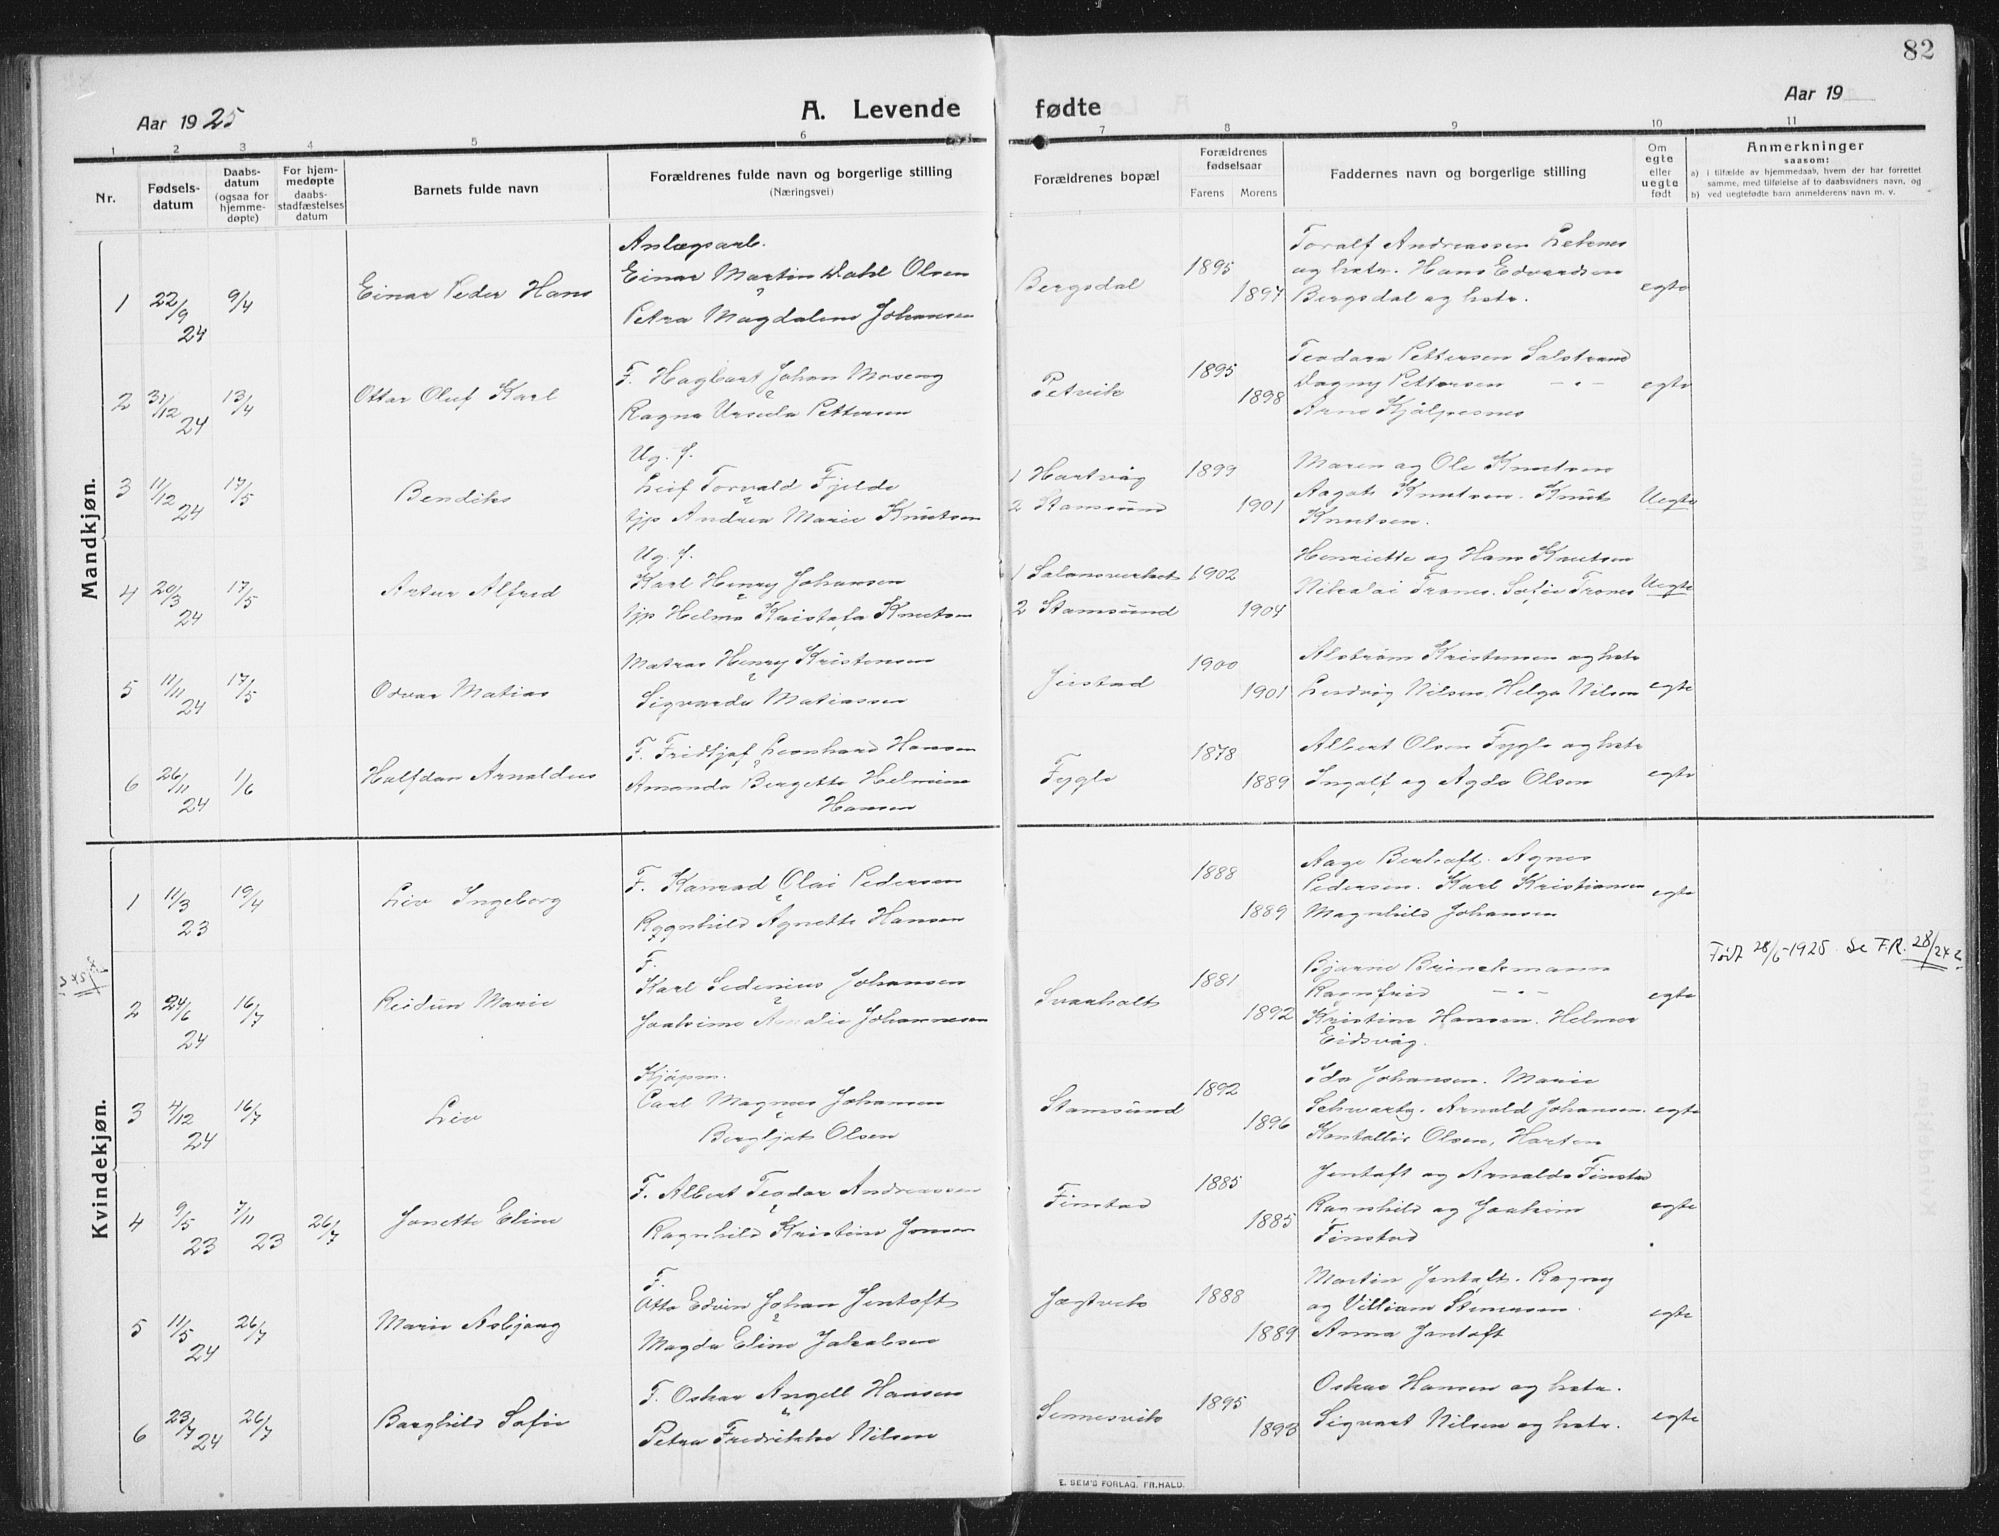 82
Aar 1925
A. Levende fødte
Aar 19
1 2 3 4 5 6 7 8 9 10 11
Nr.
Fødsels-
datum
Daabs-
datum
(ogsaa for
hjemme-
døpte)
For hjem-
medøpte
daabs-
stadfæstelses
datum
Barnets fulde navn
Forældrenes fulde navn og borgerlige stilling
(Næringsvei)
Forældrenes bopæl
Forældrenes
fødselsaar
Farens Morens
Faddernes navn og borgerlige stilling
Om
egte
eller
uegte
født
Anmerkninger
saasom:
a) i tilfælde av hjemmedaab, hvem der har forrettet
samme, med tilføielse af to daabsvidners navn, og
b) ved uegtefødte barn anmelderens navn m. v.
Mandkjøn.
1 22/9 24 9/4 Einar Peder Hans
Anlægsarb.
Einar Martin Dahl Olsen
Petra Magdalene Johansen
Bergsdal 1895 1897
Toralf Andreassen Leknes
og hstr. Hans Edvardsen
Bergsdal og hstr.
egte
2 31/12 24 13/4 Ottar Oluf Karl
F. Hagbart Johan Moseng
Ragna Ursula Pettersen
Petvik 1895 1898
Teodora Pettersen Salstrand
Dagny Pettersen — " —
Arne
egte
3 11/12 24 17/5 Bendiks
Ug. f.
Leif Torvald Fjelde
tjp Andrea Marie Knutsen
1 Hartvåg
2 Stamsund
1899 1901
Maren og Ole Knutsen
Aagot Knutsen. Knut
Knutsen.
Uegte
4 20/3 24 17/5 Artur Alfred
Ug. f.
Karl Henry Johansen
tjp Helma Kristofa Knutsen
1
2 Stamsund
1902 1904
Henriette og Hans Knutsen
Nikolai Trones. Sofie Trones
Uegte
5 11/11 24 17/5 Odvar Matias
Matros Henry Kristensen
Sigvarda Matiassen
Jeistad 1900 1901
Alstrøm Kristensen og hstr
Ludvig Nilsen, Helga Nilsen
egte
6 26/11 24 1/6 Halfdan Arnaldus
F. Fridtjof Leonhard Hansen
Amanda Bergette Helmine
Hansen
Fygle 1878 1889
Albert Olsen Fygle og hstr
Ingolf og Agda Olsen
egte
Kvindekjøn.
1 11/3 23 19/4 Liv Ingeborg
F. Konrad Olai Pedersen
Ragnhild Agnette Hansen
1888 1889
Aage Berhaft. Agnes
Pedersen. Karl Kristiansen
Magnhild Johansen
egte
2 24/6 24 16/7 Reidun Marie
F.
Karl Sedenius Johansen
Joakime Amalie Johannesen
Svarholt 1881 1892
Bjarne Brinckmann
Ragnfrid — " —
Kristine Hansen. Helmer
Eidsvåg.
egte
Født 28/6-1925 Se F.R. 28/24
3 4/12 24 16/7 Liv
Kjøpm.
Carl Magnus Johansen
Bergljot Olsen
Stamsund 1892 1896
Ida Johansen. Marie
Schwartz. Arnold Johansen.
Olsen, Horten
egte
4 9/5 23 7/11 23 26/7 Janette Eline
F. Albert Teodor Andreassen
Ragnhild Kristine Jensen
Finstad 1885 1885
Jentoft og Arnolda Finstad
Ragnhild og Joakim
Finstad
egte
5 11/5 24 26/7 Marie Asbjørg
F.
Otto Edvin Johan Jentoft
Magda Eline Jakobsen
Jægtvik 1888 1889
Martin Jentoft. Ragna
og Villiam Simensen.
Anna Jentoft
egte
6 23/7 24 26/7 Borghild Sofie
F. Oskar Angell Hansen
Petra Fredrikke Nilsen
Sennesvik 1895 1893
Oskar Hansen og hstr.
Sigvart Nilsen og hstr.
egte
E. SEM'S FORLAG, FR.HALD.